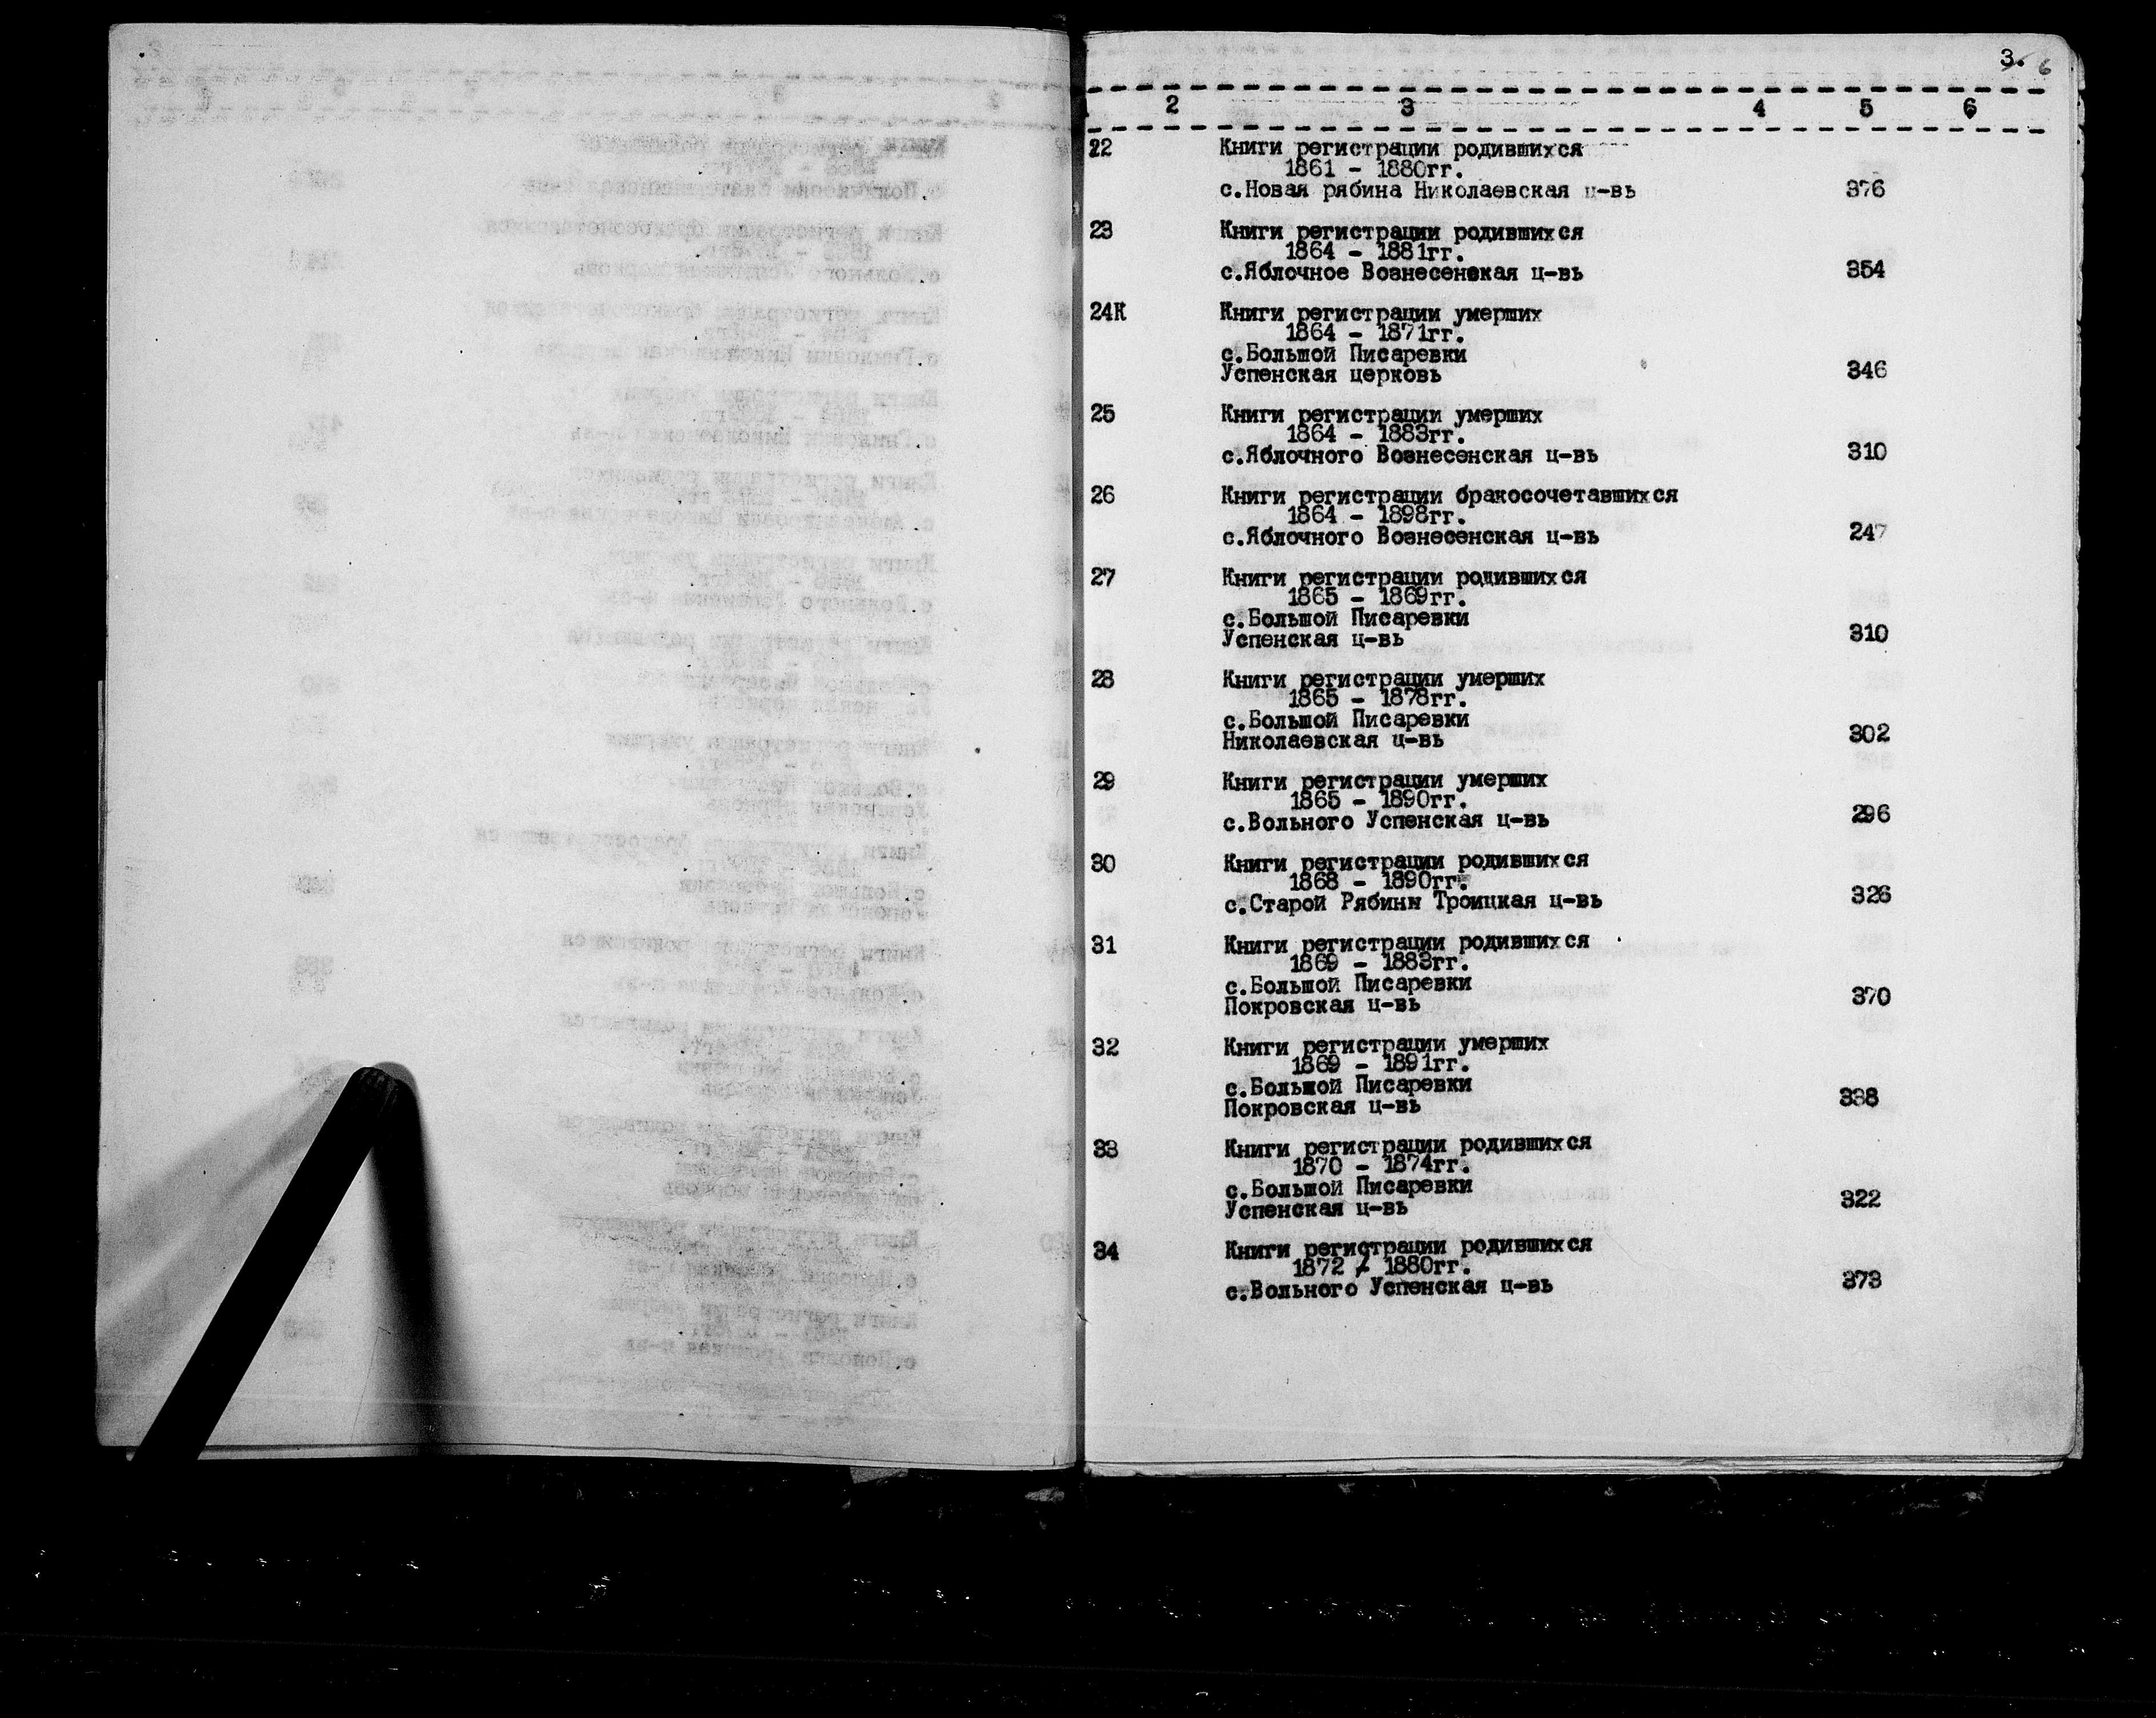 3. 6
2 3 4 5 6
22 Книги регистрации родившихся
1861 - 1880гг.
с.Новая рябина Николаевская ц-вь 376
23 Книги регистрации родившихся
1864 - 1881гг.
с.Яблочное Вознесенская ц-вь 354
24К Книги регистрации умерших
1864 - 1871гг.
с.Большой Писаревки
Успенская церковь 346
25 Книги регистрации умерших
1864 - 1883гг.
с.Яблочного Вознесенская ц-вь 310
26 Книги регистрации бракосочетавшихся
1864 - 1898гг.
с.Яблочного Вознесенская ц-вь 247
27 Книги регистрации родившихся
1865 - 1869гг.
с.Большой Писаревки
Успенская ц-вь 310
28 Книги регистрации умерших
1865 - 1878гг.
с.Большой Писаревки
Николаевская ц-вь 302
29 Книги регистрации умерших
1865 - 1890гг.
с.Вольного Успенская ц-вь 296
30 Книги регистрации родившихся
1868 - 1890гг.
с.Старой Рябины Троицкая ц-вь 326
31 Книги регистрации родившихся
1869 - 1883гг.
с.Большой Писаревки
Покровская ц-вь 370
32 Книги регистрации умерших
1869 - 1891гг.
с.Большой Писаревки
Покровская ц-вь 338
33 Книги регистрации родившихся
1870 - 1874гг.
с.Большой Писаревки
Успенская ц-вь 322
34 Книги регистрации родившихся
1872 - 1880гг.
с.Вольного Успенская ц-вь 373